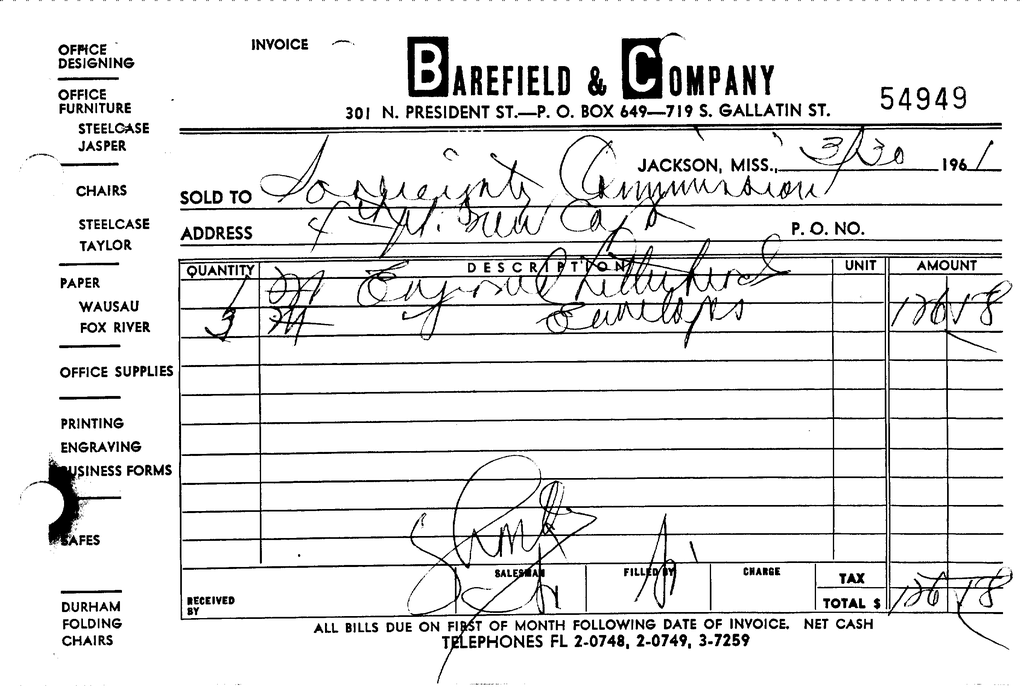 INVOICE
BAREFIELD & COMPANY
301 N. PRESIDENT ST.—P. O. BOX 649—719 S. GALLATIN ST.
54949
JACKSON, MISS., 3/30 1961
SOLD TO Sovereignty Commission
ADDRESS
P. O. NO.
QUANTITY DESCRIPTION UNIT AMOUNT
1 M Engraved Letterheads
3 M Envelopes 126 18
RECEIVED BY
SALESMAN
FILLED BY
CHARGE
TAX
TOTAL $ 126 18
ALL BILLS DUE ON FIRST OF MONTH FOLLOWING DATE OF INVOICE. NET CASH
TELEPHONES FL 2-0748, 2-0749, 3-7259
OFFICE
DESIGNING
OFFICE
FURNITURE
STEELCASE
JASPER
CHAIRS
STEELCASE
TAYLOR
PAPER
WAUSAU
FOX RIVER
OFFICE SUPPLIES
PRINTING
ENGRAVING
BUSINESS FORMS
SAFES
DURHAM
FOLDING
CHAIRS